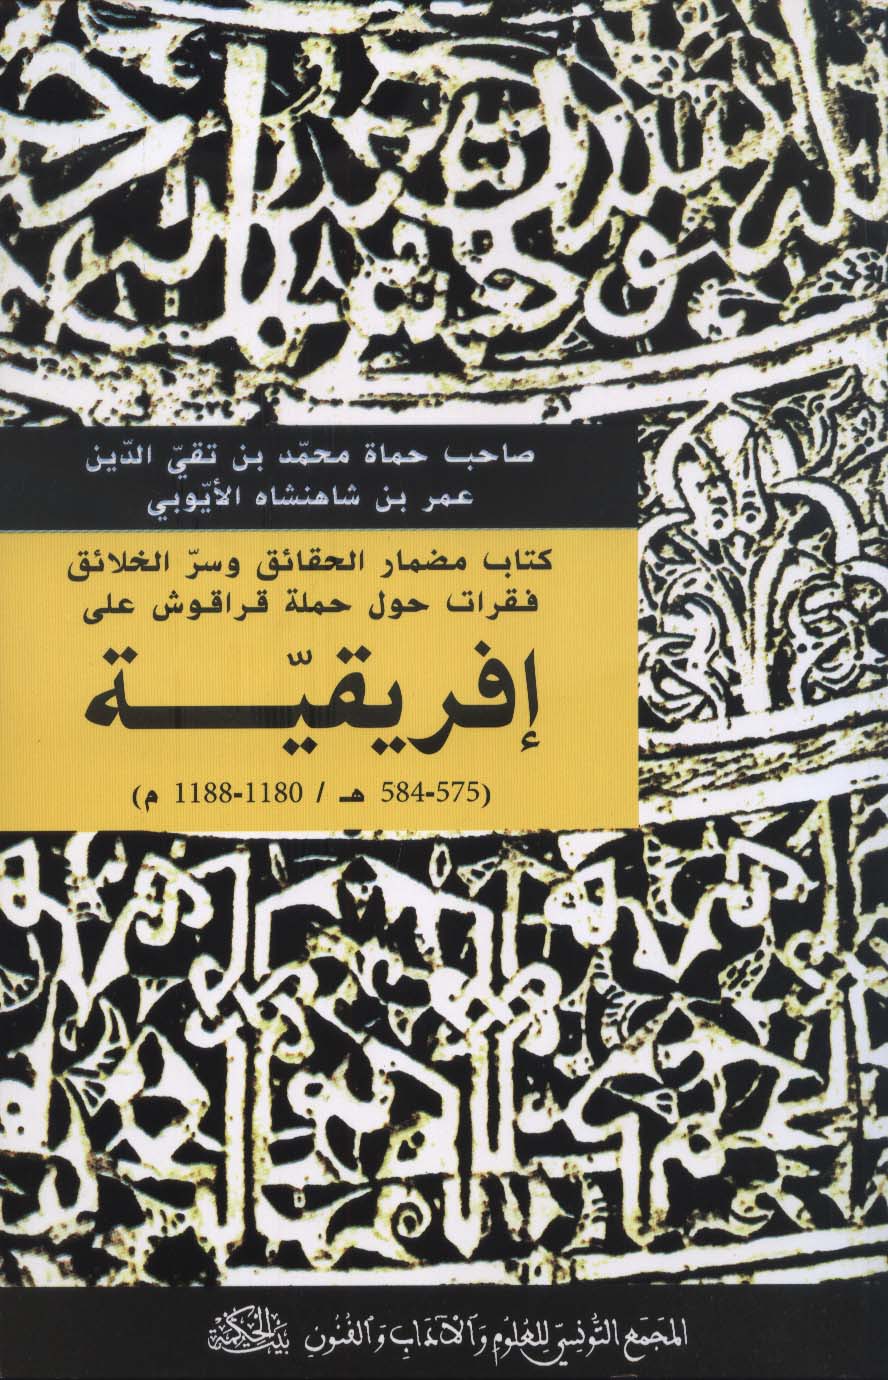 صاحب حماة محمّد بن تقيّ الدّين
عمر بن شاهنشاه الأيّوبي
كتاب مضمار الحقائق وسرّ الخلائق
فقرات حول حملة قراقوش على
إفريقيّة
(575-584 هـ / 1180-1188 م)
المجمع التونسي للعلوم والآداب والفنون بيت الحكمة